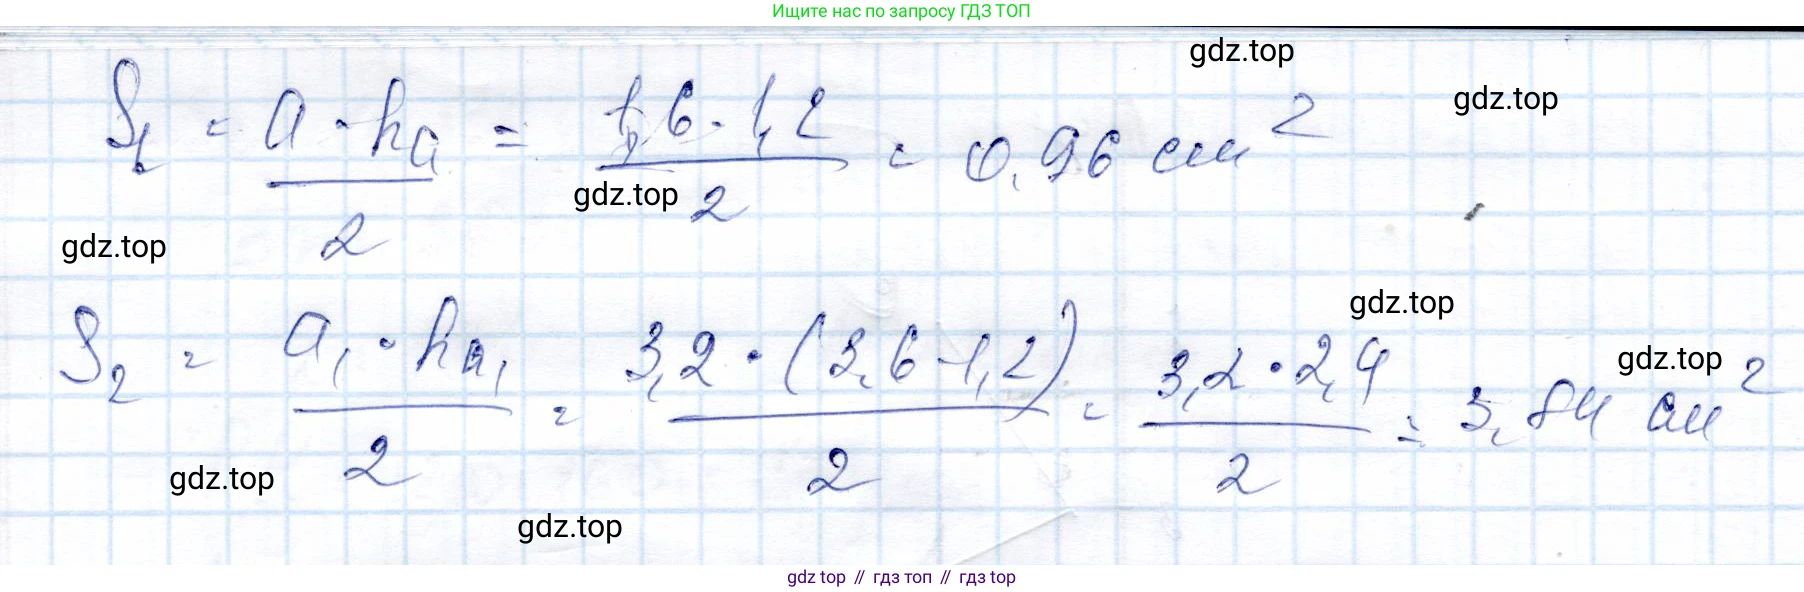 Ищите нас по запросу ГДЗ ТОП
gdz.top
gdz.top
S₁ = a · hₐ / 2 = 1,6 · 1,2 / 2 = 0,96 см²
gdz.top
gdz.top
gdz.top
S₂ = a₁ · hₐ₁ / 2 = 3,2 · (3,6 - 1,2) / 2 = 3,2 · 2,4 / 2 = 3,84 см²
gdz.top
gdz.top
gdz.top
gdz top // гдз топ // гдз top